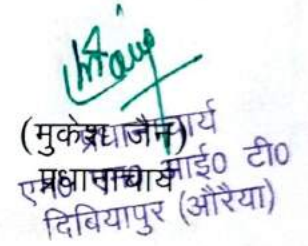 (मुकेश जैन)
प्रधानाचार्य
प्रधानाचार्य
आई० टी०
दिबियापुर (औरैया)